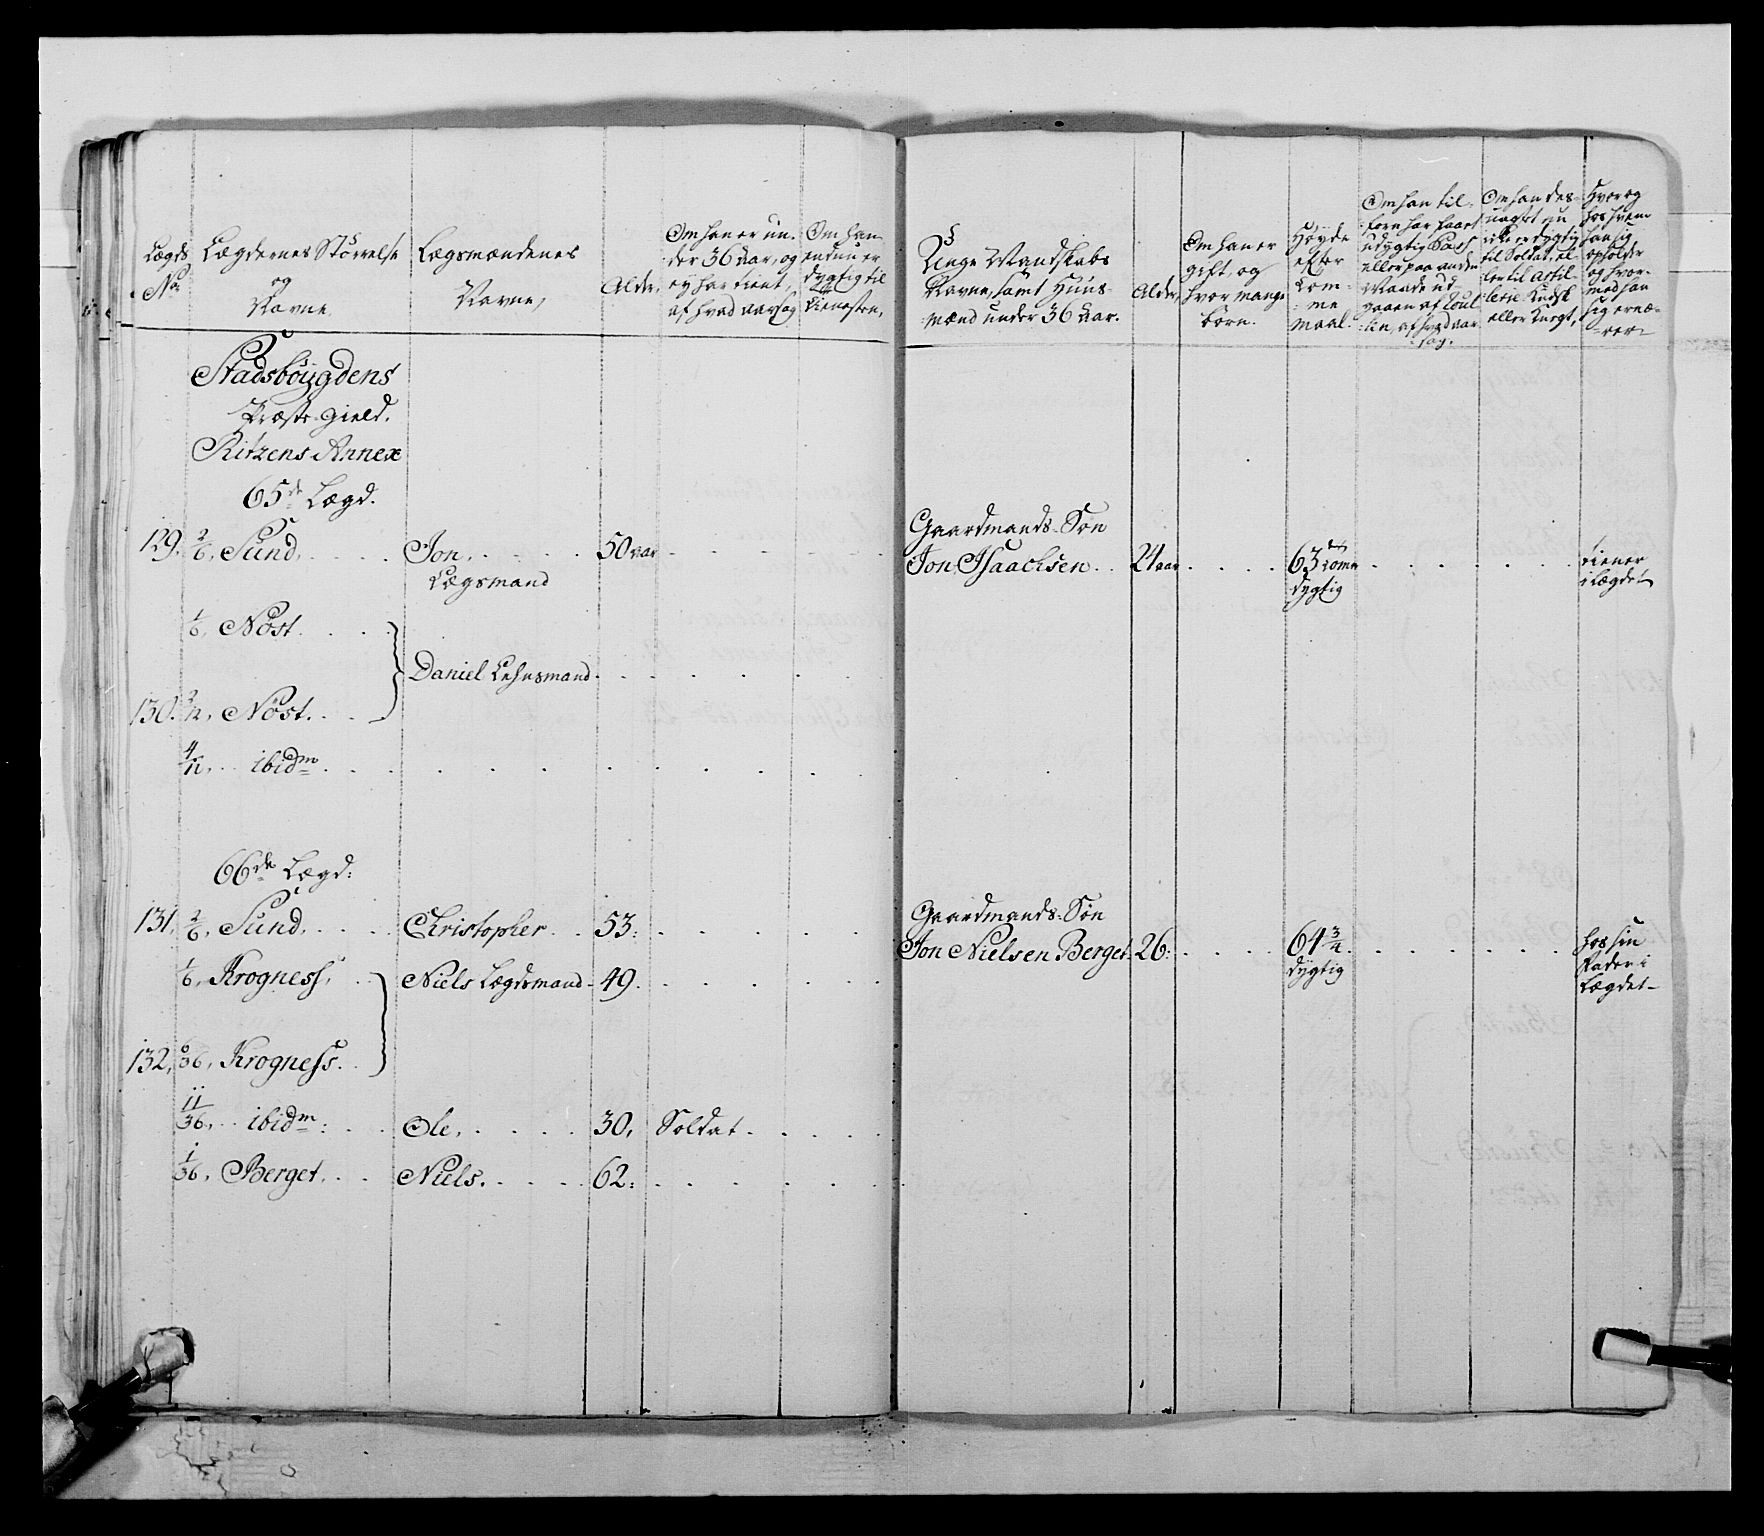 Lægds
No:
Lægdernes Störrelse
og
Navne
Lægsmændenes
Navne,
Alder,
Om han er un-
der 36 aar, og
ey har tient,
af hvad aarsag
Om han
endnu er
dygtig til
tienesten,
Unge Mandskabs
Navne, samt Huus-
mænd under 36 aar.
Alder,
Om han er
gift, og
hvor mange
börn.
Höyde
efter
Tom-
me
maal.
Om han til-
forn har faaet
udygtig Pass
eller paa anden
Maade ud-
gaaen af Roul-
len, af hvad aar-
sag.
Om han des-
uagtet nu
ikke er dygtig
til Soldat, el-
ler til Artil-
lerie-Kudsk
eller Knegt,
Hvor og
hos hvem
han sig
opholder
og hvor-
med han
sig ernæ-
rer
Stadsböygdens
Præste-Gield.
Ritzens Annex
65de Lægd.
129. 2/6, Sund. Jon. 50 aar
Lægsmand
Gaardmands-Sön
Jon Isaachsen. 24 aar 63 tom
dygtig
tiener
i lægdet
1/6, Nöst.
Daniel Lehnsmand
130. 2/12, Nöst.
4/12, ibidm
66de Lægd:
131, 2/6, Sund. Christopher. 53:
Gaardmands-Sön
Jon Nielsen Berget. 26: 64 3/4.
dygtig
hos sin
Fader i
Lægdet
1/6, Krogness, Niels Lægdsmand 49.
132, 6/36, Krogness.
11/36, ibidm: Ole, 30, Soldat.
1/36, Berget. Niels. 62: